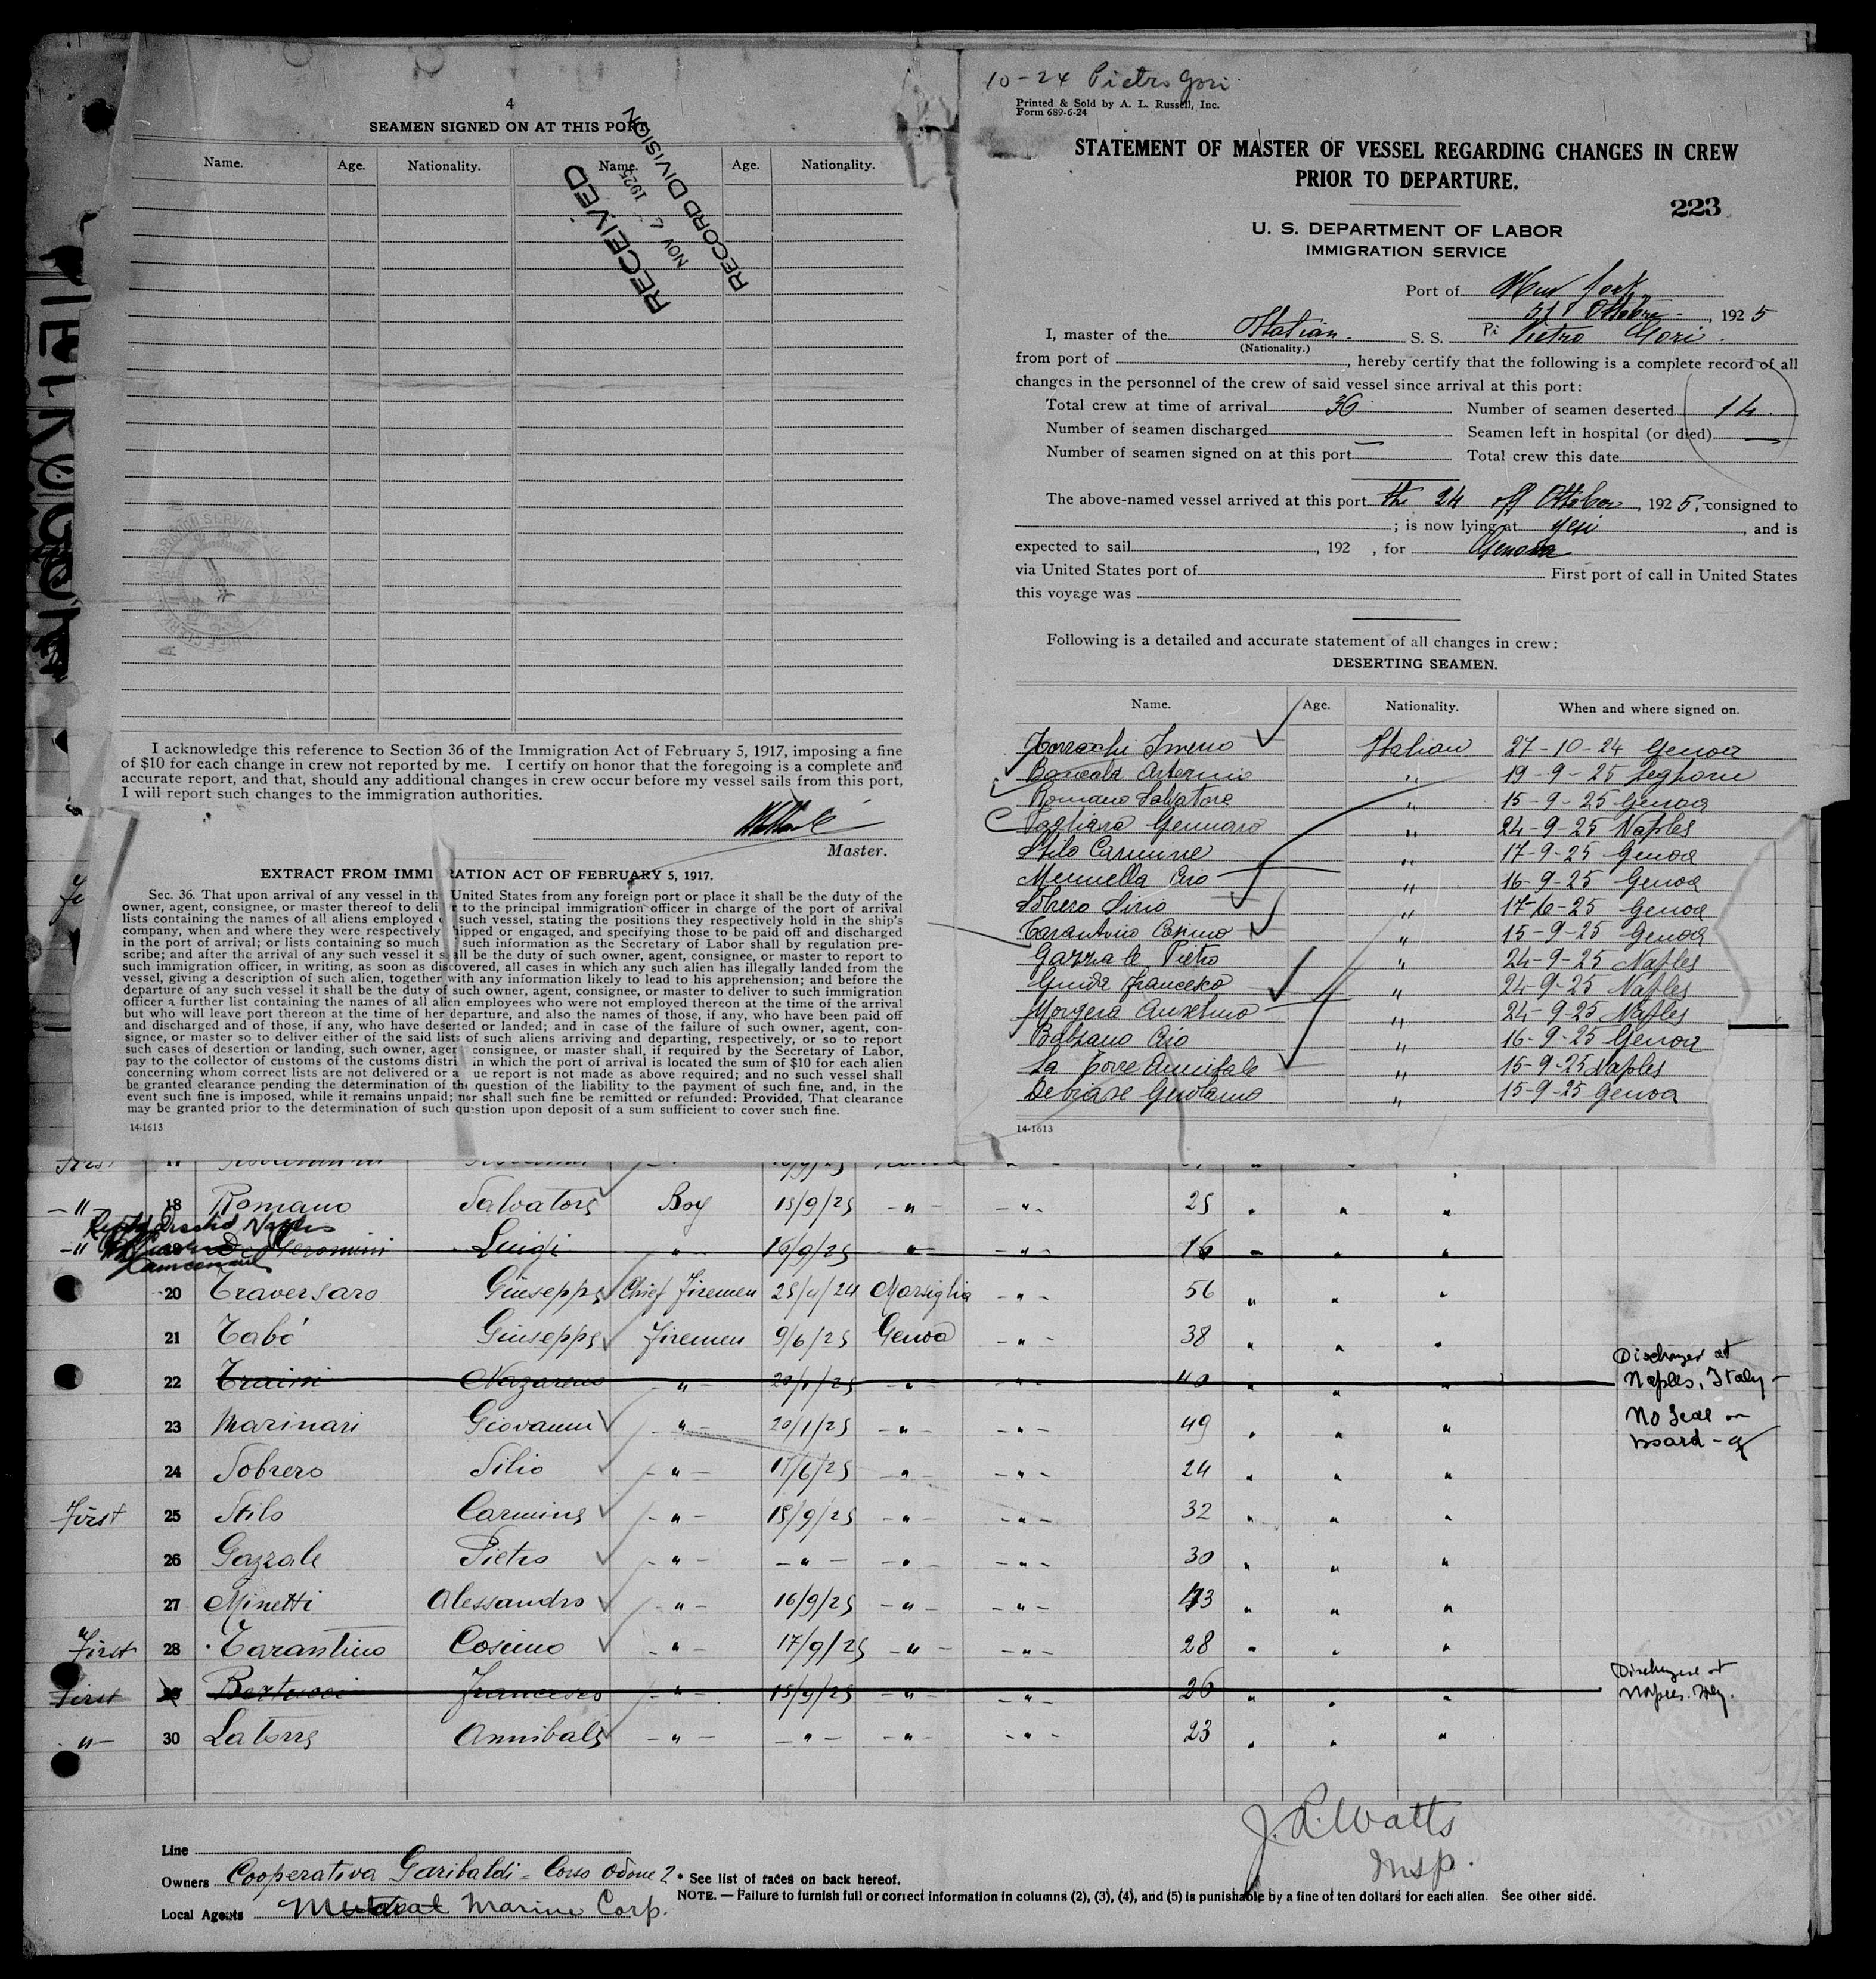 4
SEAMEN SIGNED ON AT THIS PORT
Name. Age. Nationality. Name. Age. Nationality.
RECEIVED
NOV 1925
RECORD DIVISION
I acknowledge this reference to Section 36 of the Immigration Act of February 5, 1917, imposing a fine
of $10 for each change in crew not reported by me. I certify on honor that the foregoing is a complete and
accurate report, and that, should any additional changes in crew occur before my vessel sails from this port,
I will report such changes to the immigration authorities.
Master.
EXTRACT FROM IMMI RATION ACT OF FEBRUARY 5, 1917.
Sec. 36. That upon arrival of any vessel in th United States from any foreign port or place it shall be the duty of the
owner, agent, consignee, or master thereof to deli r to the principal immigration officer in charge of the port of arrival
lists containing the names of all aliens employed such vessel, stating the positions they respectively hold in the ship's
company, when and where they were respectively hipped or engaged, and specifying those to be paid off and discharged
in the port of arrival; or lists containing so much such information as the Secretary of Labor shall by regulation pre-
scribe; and after the arrival of any such vessel it s all be the duty of such owner, agent, consignee, or master to report to
such immigration officer, in writing, as soon as discovered, all cases in which any such alien has illegally landed from the
vessel, giving a description of such alien, together with any information likely to lead to his apprehension; and before the
departure of any such vessel it shall be the duty of such owner, agent, consignee, or master to deliver to such immigration
officer a further list containing the names of all alien employees who were not employed thereon at the time of the arrival
but who will leave port thereon at the time of her departure, and also the names of those, if any, who have been paid off
and discharged and of those, if any, who have deserted or landed; and in case of the failure of such owner, agent, con-
signee, or master so to deliver either of the said lists of such aliens arriving and departing, respectively, or so to report
such cases of desertion or landing, such owner, ager consignee, or master shall, if required by the Secretary of Labor,
pay to the collector of customs of the customs distri in which the port of arrival is located the sum of $10 for each alien
concerning whom correct lists are not delivered or a ue report is not made as above required; and no such vessel shall
be granted clearance pending the determination of the question of the liability to the payment of such fine, and, in the
event such fine is imposed, while it remains unpaid; nor shall such fine be remitted or refunded: Provided, That clearance
may be granted prior to the determination of such question upon deposit of a sum sufficient to cover such fine.
14-1613
10-24 Pietro Gori
Printed & Sold by A. L. Russell, Inc.
Form 689-6-24
STATEMENT OF MASTER OF VESSEL REGARDING CHANGES IN CREW
PRIOR TO DEPARTURE.
223
U. S. DEPARTMENT OF LABOR
IMMIGRATION SERVICE
Port of New York
31 Ottobre , 192 5
I, master of the Italian. S. S. Pi Pietro Gori.
(Nationality.)
from port of , hereby certify that the following is a complete record of all
changes in the personnel of the crew of said vessel since arrival at this port:
Total crew at time of arrival 36 Number of seamen deserted 14
Number of seamen discharged Seamen left in hospital (or died) —
Number of seamen signed on at this port — Total crew this date
The above-named vessel arrived at this port the 24 of Ottober, 192 5, consigned to
; is now lying at , and is
expected to sail , 192 , for Genova
via United States port of First port of call in United States
this voyage was
Following is a detailed and accurate statement of all changes in crew:
DESERTING SEAMEN.
Name. Age. Nationality. When and where signed on.
Italian 27-10-24 Genoa
" 19-9-25 Leghorn
Romano Salvatore " 15-9-25 Genoa
Pagliara Gennaro " 24-9-25 Naples
Stilo Carmine " 17-9-25 Genoa
Mennella Ciro " 16-9-25 Genoa
Sobrero Sirio " 17-6-25 Genoa
Tarantino Cosimo " 15-9-25 Genoa
Gazzale Pietro " 24-9-25 Naples
Guida Francesco " 24-9-25 Naples
Morgera Anselmo " 24-9-25 Naples
Balzano Ciro " 16-9-25 Genoa
La Torre Annibale " 15-9-25 Naples
Debiase Gerolamo " 15-9-25 Genoa
14-1613
-"- 18 Romano Salvatore Boy 15/9/25 -"- -"- 25 " " "
-"- Luigi " 16/9/25 " 16 " " "
20 Traversaro Giuseppe Chief Firemen 25/4/24 Marsiglia -"- 56 " " "
21 Tabó Giuseppe Firemen 9/6/25 Genoa -"- 38 " " "
22 Traini Nazareno -"- 20/1/25 -"- -"- 40 " " " Discharged at Naples, Italy -
23 Marinari Giovanni -"- 20/1/25 -"- -"- 49 " " " No Seal on board - g
24 Sobrero Silio -"- 17/6/25 -"- -"- 24 " " "
First 25 Stilo Carmine -"- 15/9/25 -"- -"- 32 " " "
26 Gazzale Pietro -"- -"- -"- -"- 30 " " "
27 Minetti Alessandro -"- 16/9/25 -"- -"- 43 " " "
First 28 Tarantino Cosimo -"- 17/9/25 -"- -"- 28 " " "
First 29 Bertucci Francesco -"- 15/9/25 -"- -"- 26 " " " Discharged at Naples. Italy.
-"- 30 Latorre Annibale -"- -"- -"- -"- 23 " " "
J. R. Watts
Insp.
Line
Owners Cooperativa Garibaldi - Corso Odone 2 * See list of races on back hereof.
NOTE. — Failure to furnish full or correct information in columns (2), (3), (4), and (5) is punishable by a fine of ten dollars for each alien. See other side.
Local Agents Mutual Marine Corp.